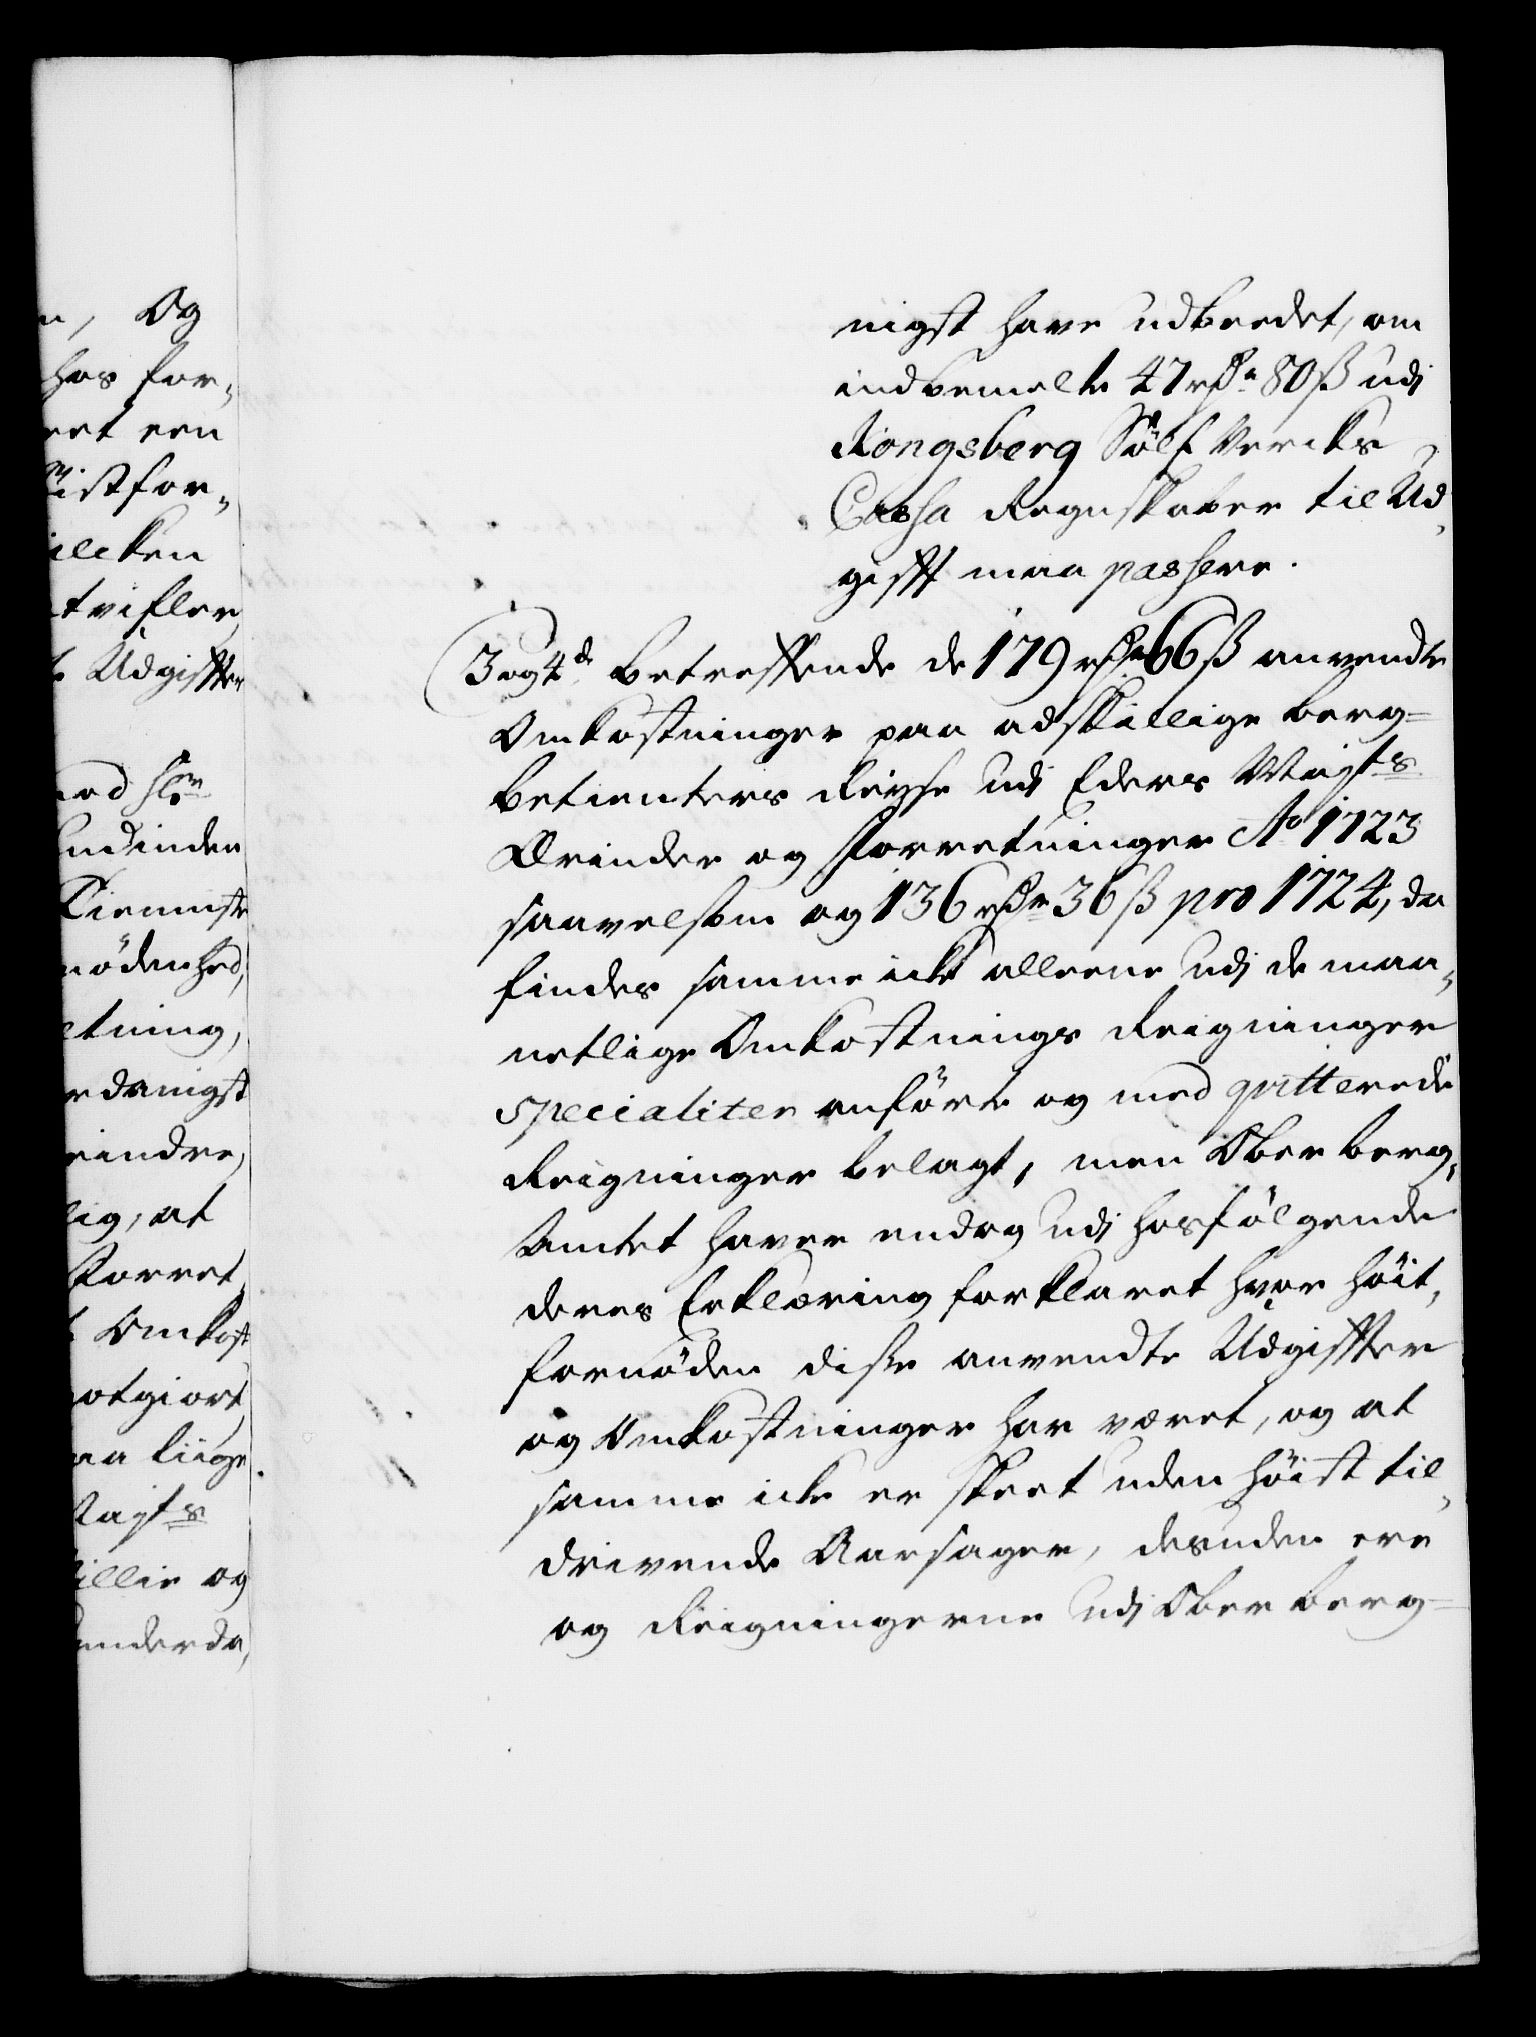 n, Og
hos for„
eet een
Mistfor„
ilcken
tvifler
Udgiffter
med slr
Qvinder
Tienniste
nödenhed,
etning,
erdanigst
eindre,
lig, at
Forret„
Omkost
otgiort
aa liige
Mayts
illie og
underda„
nigst have udbeedet, om
indbemelte 47 rdr 80 ß udj
Kongsberg Sölf Vercks
Cassa Regnskaber til Ud„
gifft maa passere.
3 og 4de betreffende de 179 rdr 66 ß anvendte
Omkostninger paa adskillige berg=
betienters Reyse udj Eders Mayts
Ærinder og Forretninger Ao 1723
saavelsom og 136 rdr 36 ß pro 1724, da
findes samme icke alleene udj de maa„
netlige Omkostnings Reigninger
specialiter anförte og med qvitterede
Reigninger belagt, men Ober berg„
Amtet haver endog udj hosfölgende
deres Erklæring forklaret hvor höit„
fornöden disse anvendte Udgiffter
og Omkostninger har været, og at
samme icke er skeet uden höist til„
drivende Aarsager, desuden ere
og Reigningerne udj Ober berg=